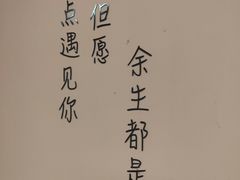 点遇见你
但愿
余生都是